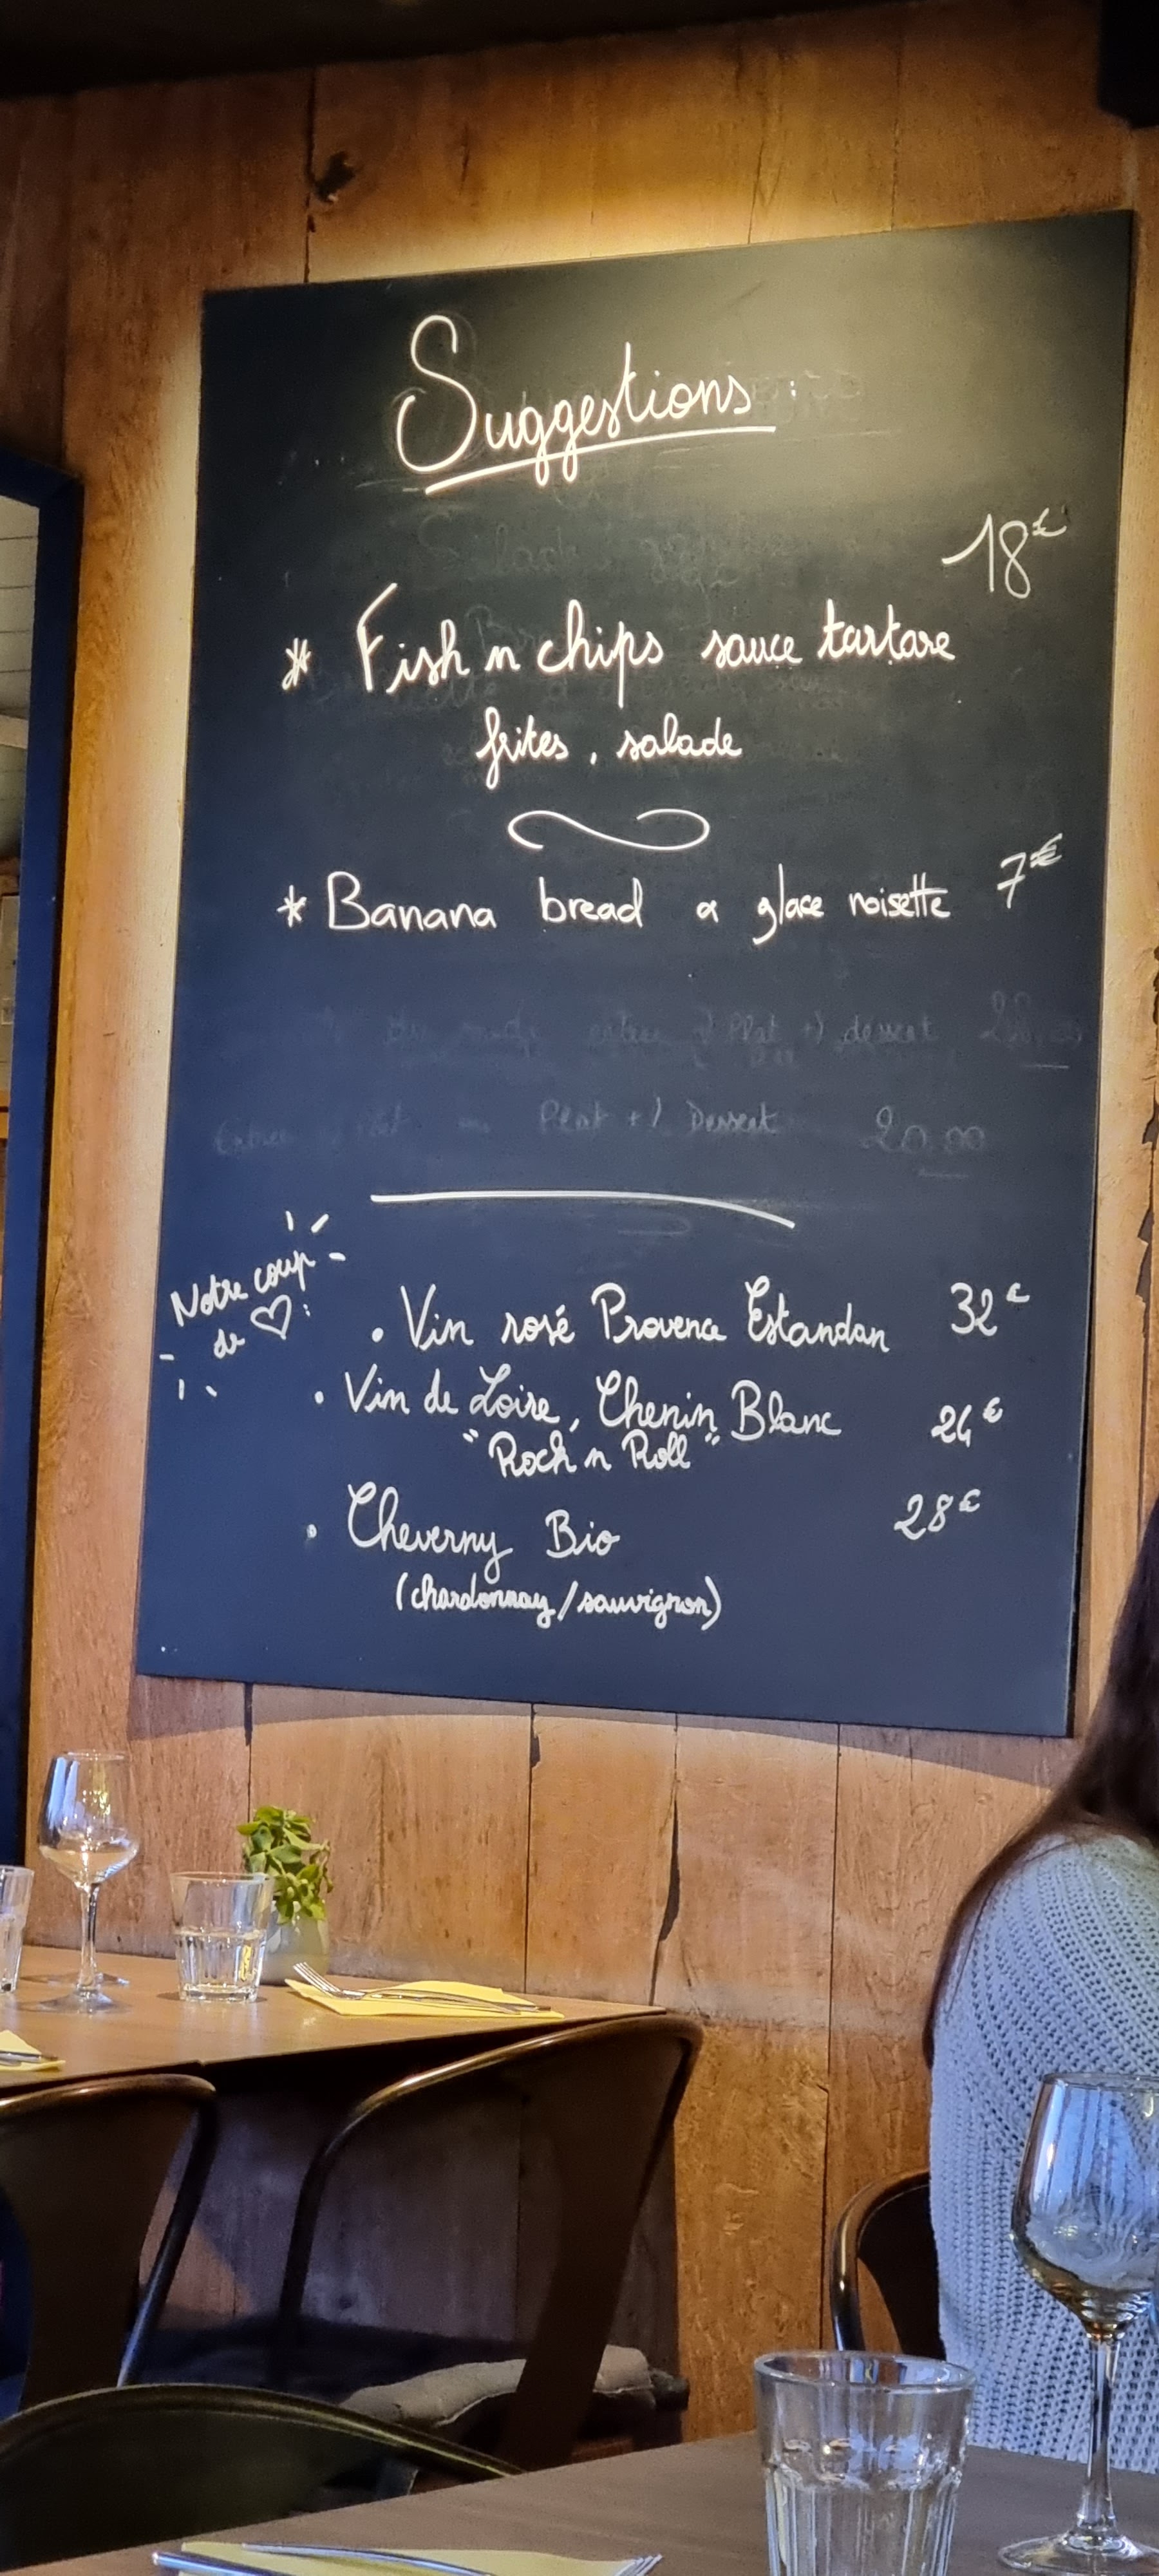 Suggestions :
18€
* Fish n chips sauce tartare
frites, salade
* Banana bread & glace noisette 7€
Plat +/ dessert
Plat +/ Dessert 20.00
Notre coup
de ♡ :
• Vin rosé Provence Estandan 32€
• Vin de Loire, Chenin Blanc 24€
"Rock n Roll"
• Cheverny Bio 28€
(chardonnay/sauvignon)